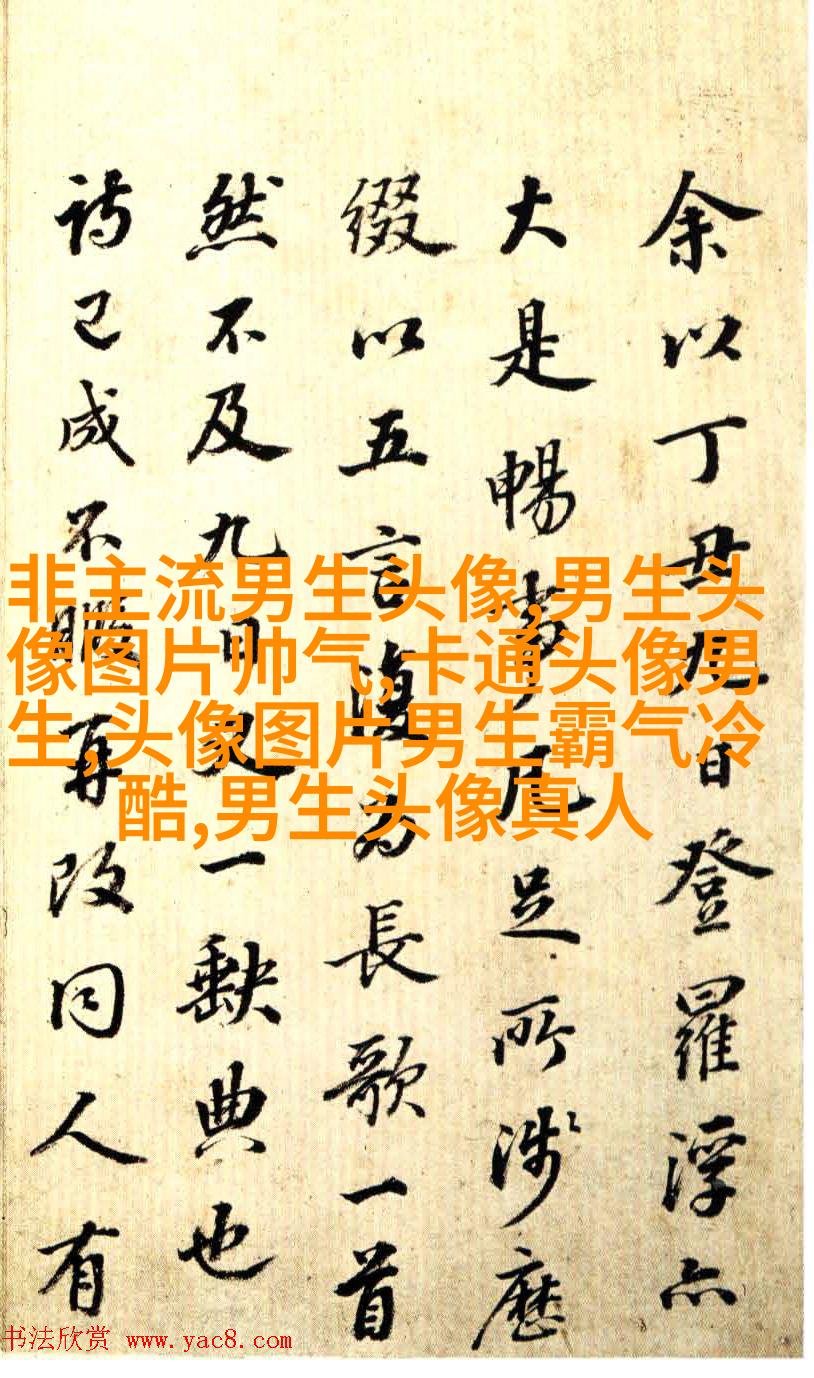 余以丁丑九日登羅浮亦
大是暢事凡足所涉歷
綴以五言復為長歌一首
然不及九日又一缺典也
詩已成不暇再改同人有
非主流男生头像,男生头
像图片帅气,卡通头像男
生,头像图片男生霸气冷
酷,男生头像真人
书法欣赏 www.yac8.com